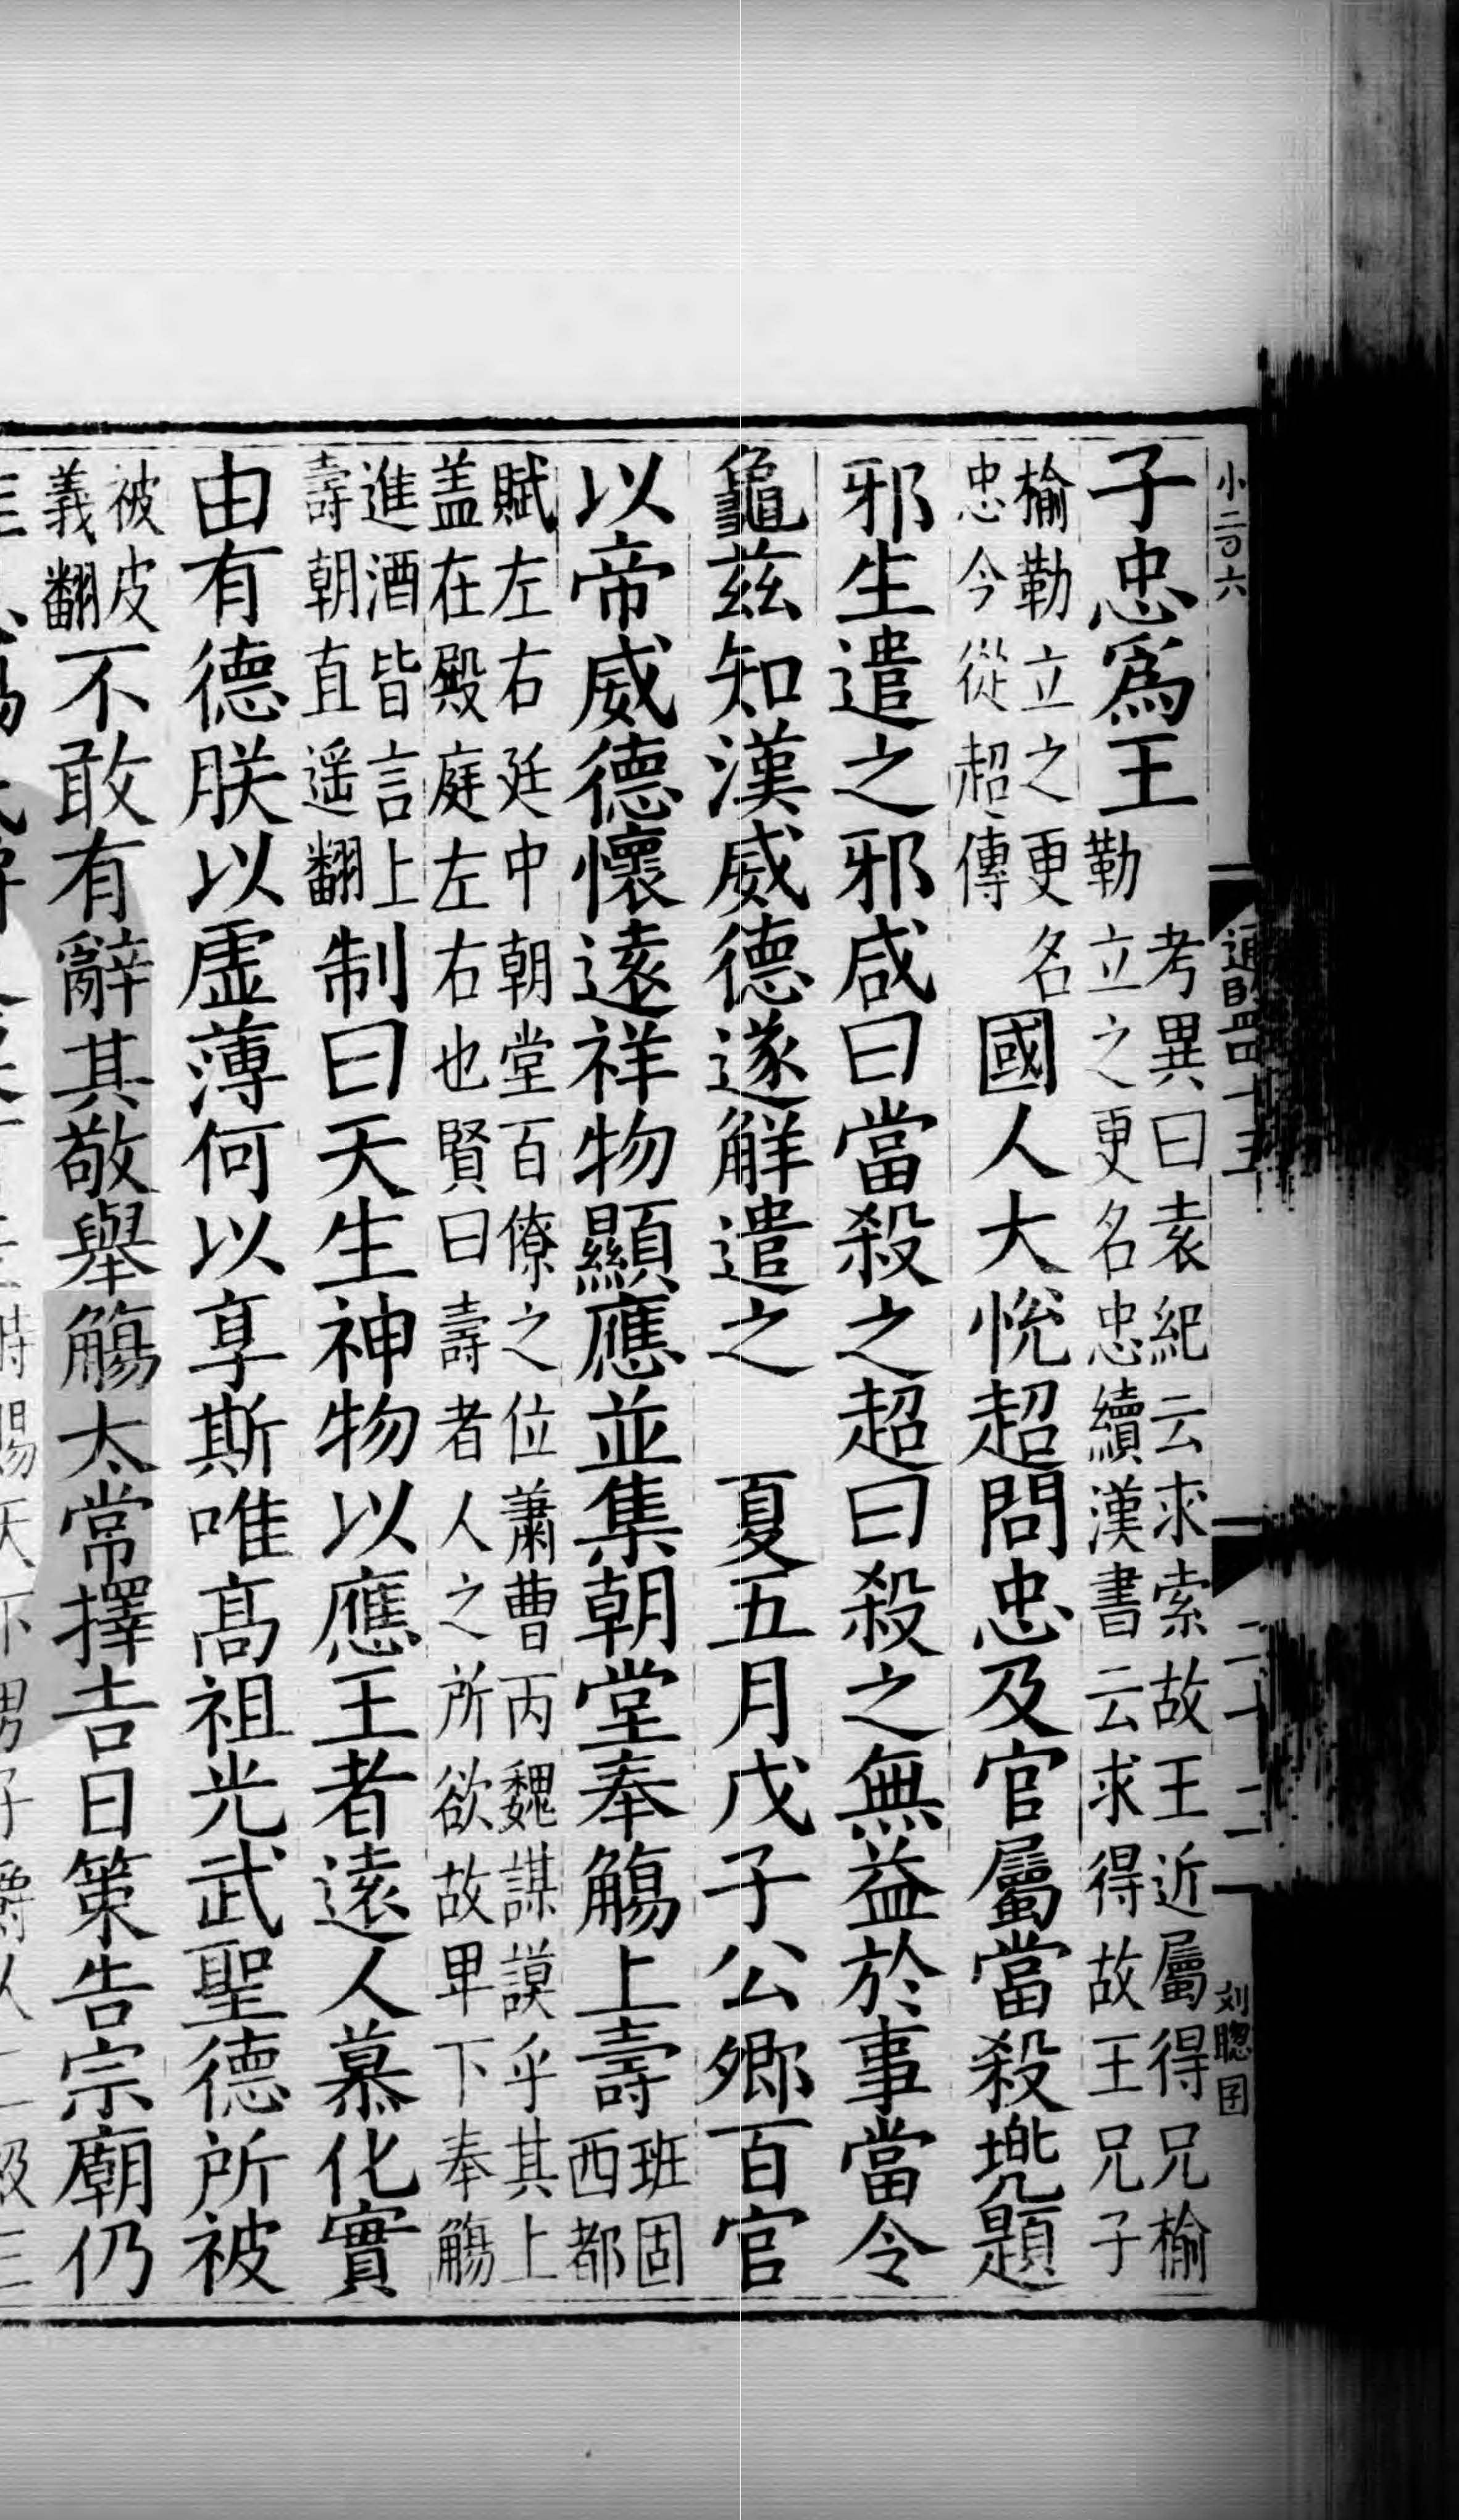 小二百六
通鑑四十五
二十二
刘聰
子忠爲王
考異曰袁紀云求索故王近屬得兄榆
勒立之更名忠續漢書云求得故王兄子
榆勒立之更名
忠今從超傳
國人大悅超問忠及官屬當殺兠題
邪生遣之邪咸曰當殺之超曰殺之無益於事當令
龜茲知漢威德遂觧遣之 夏五月戊子公卿百官
以帝威德懷遠祥物顯應並集朝堂奉觴上壽
班固
西都
賦左右廷中朝堂百僚之位蕭曹丙魏謀謨乎其上
盖在殿庭左右也賢曰壽者人之所欲故卑下奉觴
進酒皆言上
壽朝直遥翻
制曰天生神物以應王者遠人慕化實
由有德朕以虛薄何以享斯唯高祖光武聖德所被
被皮
義翻
不敢有辭其敬舉觴太常擇吉日策告宗廟仍